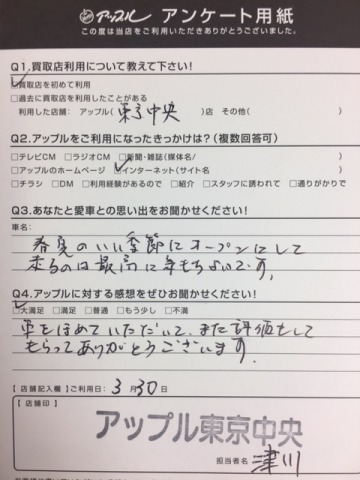 アップル アンケート用紙
この度は当店をご利用いただきありがとうございました。
Q1.買取店利用について教えて下さい!
☑買取店を初めて利用
□過去に買取店を利用したことがある
利用した店舗: アップル( 東京中央 )店 その他( )
Q2.アップルをご利用になったきっかけは?(複数回答可)
□テレビCM □ラジオCM □新聞・雑誌(媒体名/ )
□アップルのホームページ ☑インターネット(サイト名 )
□チラシ □DM □利用経験があるので □紹介 □スタッフに誘われて □通りがかりで
Q3.あなたと愛車との思い出をお聞かせください!
車名:
春夏のいい季節にオープンにして
走るのは最高に気もちよいです。
Q4.アップルに対する感想をぜひお聞かせください!
☑大満足 □満足 □普通 □もう少し □不満
車をほめていただいて、また評価もして
もらってありがとうございます。
【店舗記入欄】ご利用日: 3月30日
【店舗印】
アップル東京中央
担当者名 津川